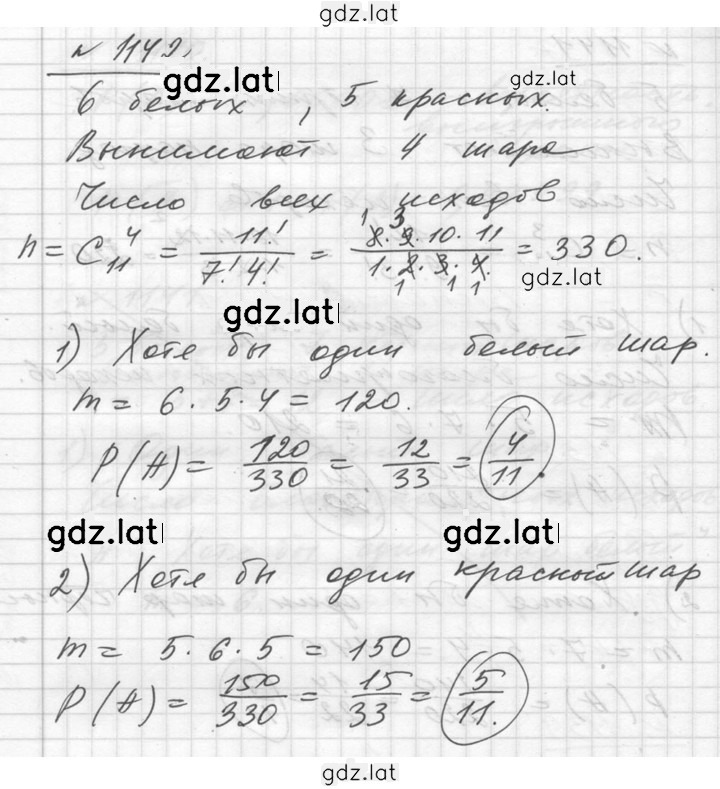 gdz.lat
№ 1149.
gdz.lat gdz.lat
6 белых, 5 красных.
Вынимают 4 шара
Число всех исходов
n = C₁₁⁴ = 11!/7!4! = 8·9·10·11/1·2·3·4 = 330.
gdz.lat
gdz.lat
1) Хотя бы один белый шар.
m = 6·5·4 = 120.
P(A) = 120/330 = 12/33 = 4/11.
gdz.lat gdz.lat
2) Хотя бы один красный шар
m = 5·6·5 = 150
P(A) = 150/330 = 15/33 = 5/11.
gdz.lat